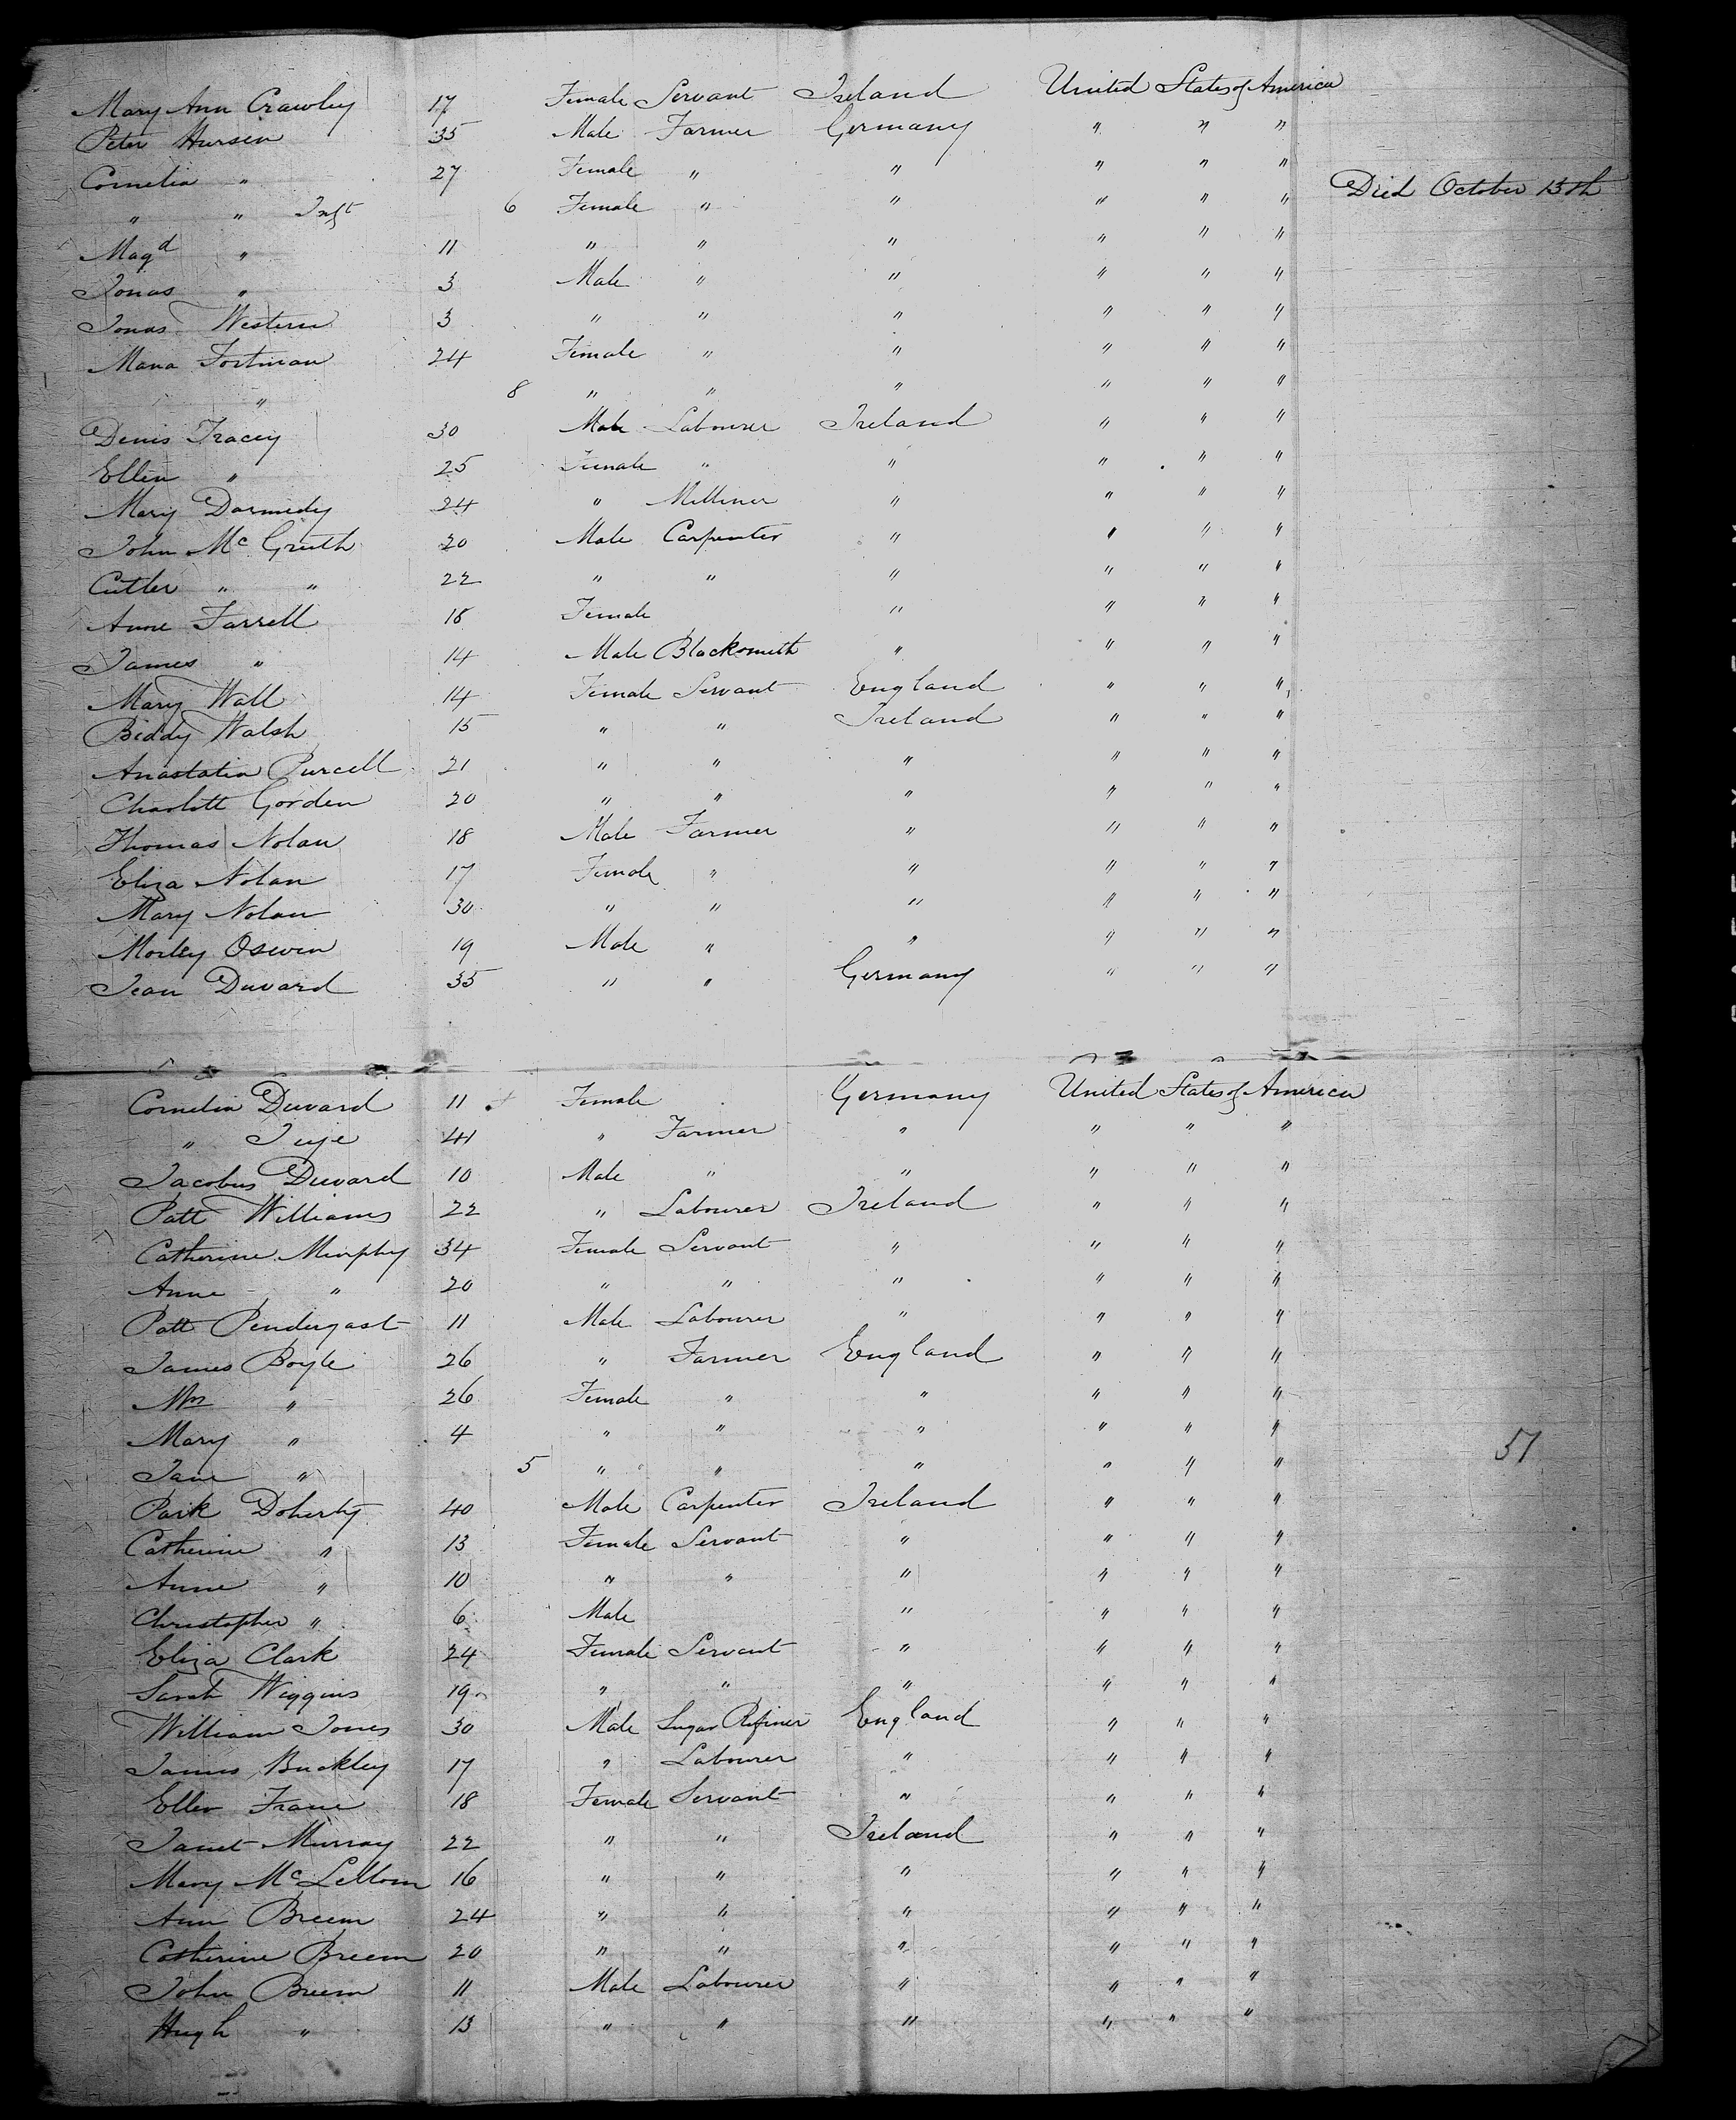 Mary Ann Crawley 17 Female Servant Ireland United States of America
Peter Hursen 35 Male Farmer Germany " " "
Cornelia " 27 Female " " " " "
" " Inft 6 Female " " " " " Died October 13th
Magd " 11 " " " " " "
Jonas " 3 Male " " " " "
Jonas Western 3 " " " " " "
Mana Fortman 24 Female " " " " "
" 8 " " " " " "
Denis Tracey 30 Male Labourer Ireland " " "
Ellen " 25 Female " " " " "
Mary Darmedy 24 " Milliner " " " "
John Mc Grath 20 Male Carpenter " " " "
Cutler " " 22 " " " " " "
Anne Farrell 18 Female " " " "
James " 14 Male Blacksmith " " " "
Mary Wall 14 Female Servant England " " "
Biddy Walsh 15 " " Ireland " " "
Anastatia Purcell 21 " " " " " "
Charlott Gorden 20 " " " " " "
Thomas Nolan 18 Male Farmer " " " "
Eliza Nolan 17 Female " " " " "
Mary Nolan 30 " " " " " "
Morley Oswin 19 Male " " " " "
Jean Duvard 35 " " Germany " " "
Cornelia Duvard 11 Female Germany United States of America
" 41 " Farmer " " " "
Jacobus Duvard 10 Male " " " " "
Patt Williams 22 " Labourer Ireland " " "
Catherine Murphy 34 Female Servant " " " "
Anne " 20 " " " " " "
Patt Pendergast 11 Male Labourer " " " "
James Boyle 26 " Farmer England " " "
Mrs " 26 Female " " " " "
Mary " 4 " " " " " "
Jane " 5 " " " " " "
57
Park Doherty 40 Male Carpenter Ireland " " "
Catherine " 13 Female Servant " " " "
Anne " 10 " " " " " "
Christopher " 6 Male " " " "
Eliza Clark 24 Female Servant " " " "
Sarah Wiggins 19 " " " " " "
William Jones 30 Male Sugar Refiner England " " "
James Buckley 17 " Labourer " " " "
Ellen Frane 18 Female Servant " " " "
Janet Murray 22 " " Ireland " " "
Mary Mc Lellom 16 " " " " " "
Ann Breem 24 " " " " " "
Catherine Breem 20 " " " " " "
John Breem 11 Male Labourer " " " "
Hugh " 13 " " " " " "